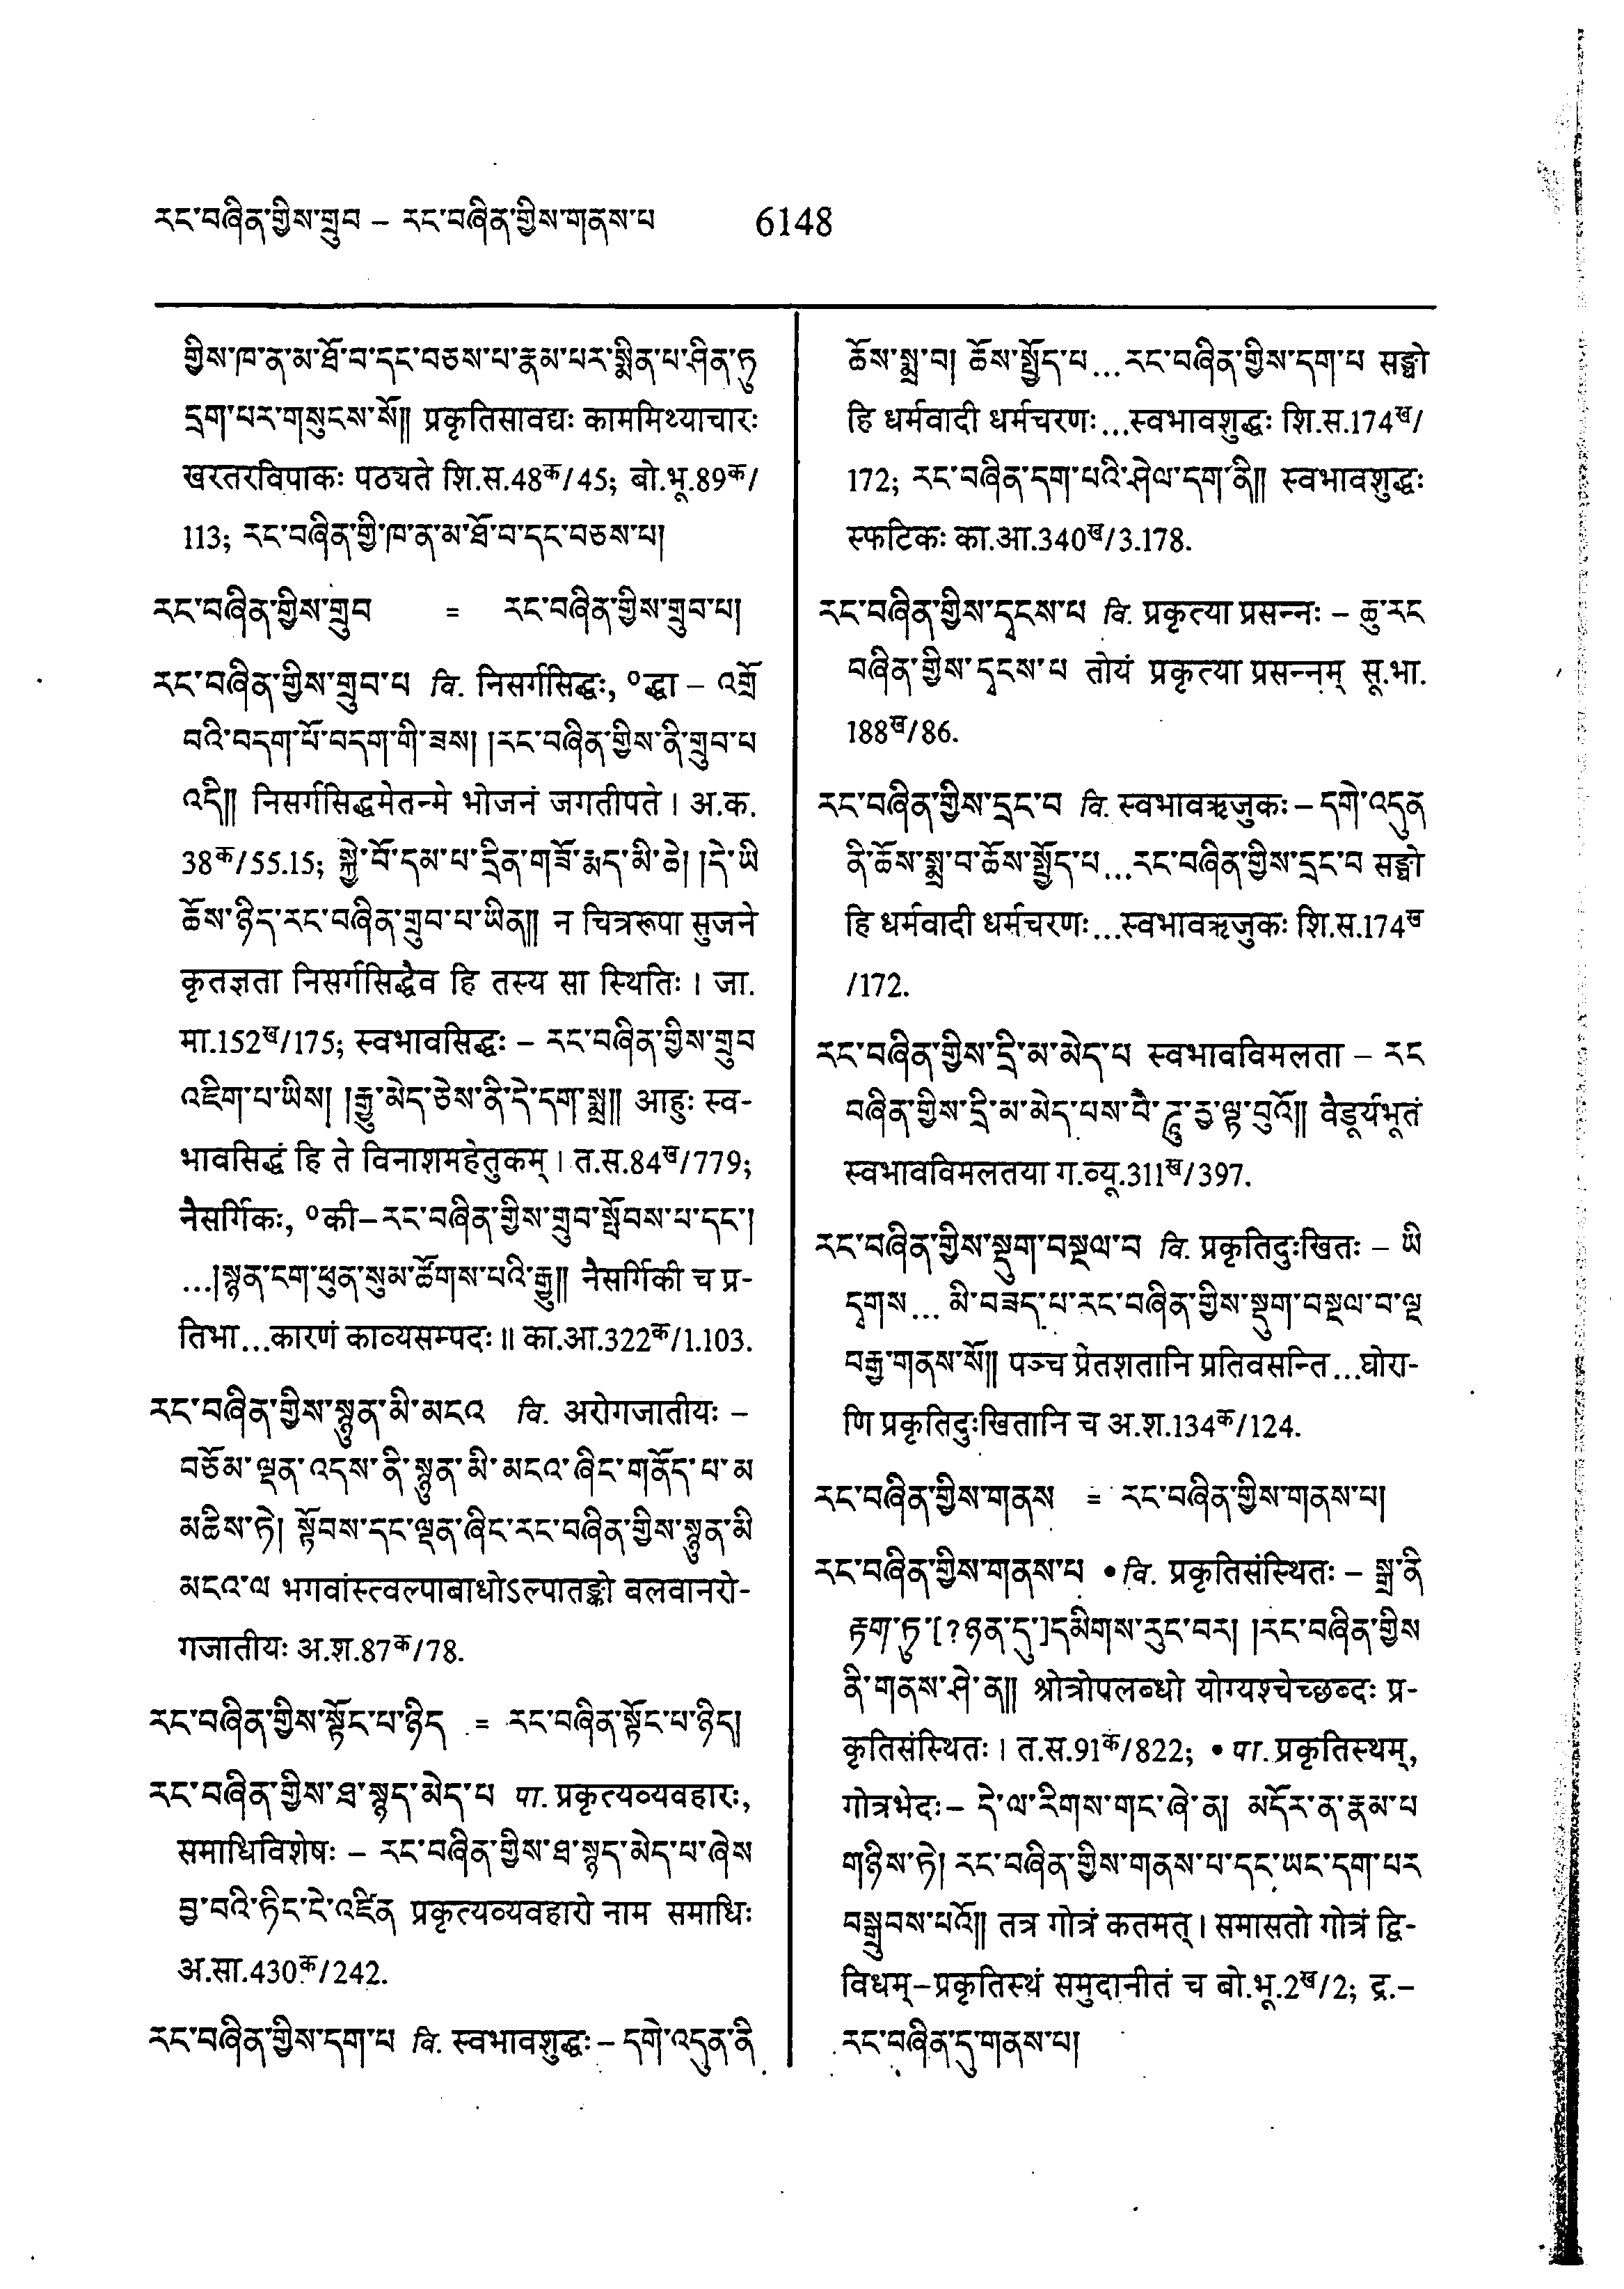 རང་བཞིན་གྱིས་གྲུབ – རང་བཞིན་གྱིས་གནས་པ 6148
གྱིས་ཁ་ན་མ་ཐོ་བ་དང་བཅས་པ་རྣམ་པར་སྨིན་པ་ཤིན་ཏུ
དྲག་པར་གསུངས་སོ།། प्रकृतिसावद्यः काममिथ्याचारः
खरतरविपाकः पठ्यते शि.स.48क/45; बो.भू.89क/
113; རང་བཞིན་གྱི་ཁ་ན་མ་ཐོ་བ་དང་བཅས་པ།
རང་བཞིན་གྱིས་གྲུབ = རང་བཞིན་གྱིས་གྲུབ་པ།
རང་བཞིན་གྱིས་གྲུབ་པ वि. निसर्गसिद्धः, ०द्धा – འགྲོ
བའི་བདག་པོ་བདག་གི་ཟས། །རང་བཞིན་གྱིས་ནི་གྲུབ་པ
འདི།། निसर्गसिद्धमेतन्मे भोजनं जगतीपते । अ.क.
38क/55.15; སྐྱེ་བོ་དམ་པ་དྲིན་གཟོ་རྨད་མི་ཆེ། །དེ་ཡི
ཆོས་ཉིད་རང་བཞིན་གྲུབ་པ་ཡིན།། न चित्ररूपा सुजने
कृतज्ञता निसर्गसिद्धैव हि तस्य सा स्थितिः । जा.
मा.152ख/175; स्वभावसिद्धः – རང་བཞིན་གྱིས་གྲུབ
འཇིག་པ་ཡིས། །རྒྱུ་མེད་ཅེས་ནི་དེ་དག་སྨྲ།། आहुः स्व-
भावसिद्धं हि ते विनाशमहेतुकम् । त.स.84ख/779;
नैसर्गिकः, ०की – རང་བཞིན་གྱིས་གྲུབ་སྤོབས་པ་དང་།
...།སྙན་ངག་ཕུན་སུམ་ཚོགས་པའི་རྒྱུ།། नैसर्गिकी च प्र-
तिभा...कारणं काव्यसम्पदः ॥ का.आ.322क/1.103.
རང་བཞིན་གྱིས་སྙུན་མི་མངའ वि. अरोगजातीयः –
བཅོམ་ལྡན་འདས་ནི་སྙུན་མི་མངའ་ཞིང་གནོད་པ་མ
མཆིས་ཏེ། སྟོབས་དང་ལྡན་ཞིང་རང་བཞིན་གྱིས་སྙུན་མི
མངའ་ལ भगवांस्त्वल्पाबाधोऽल्पातङ्को बलवानरो-
गजातीयः अ.श.87क/78.
རང་བཞིན་གྱིས་སྟོང་པ་ཉིད = རང་བཞིན་སྟོང་པ་ཉིད།
རང་བཞིན་གྱིས་ཐ་སྙད་མེད་པ पा. प्रकृत्यव्यवहारः,
समाधिविशेषः – རང་བཞིན་གྱིས་ཐ་སྙད་མེད་པ་ཞེས
བྱ་བའི་ཏིང་ངེ་འཛིན प्रकृत्यव्यवहारो नाम समाधिः
अ.सा.430क/242.
རང་བཞིན་གྱིས་དག་པ वि. स्वभावशुद्धः – དགེ་འདུན་ནི
ཆོས་སྨྲ་བ། ཆོས་སྤྱོད་པ...རང་བཞིན་གྱིས་དག་པ सङ्घो
हि धर्मवादी धर्मचरणः...स्वभावशुद्धः शि.स.174ख/
172; རང་བཞིན་དག་པའི་ཤེལ་དག་ནི།། स्वभावशुद्धः
स्फटिकः का.आ.340ख/3.178.
རང་བཞིན་གྱིས་དྭངས་པ वि. प्रकृत्या प्रसन्नः – ཆུ་རང
བཞིན་གྱིས་དྭངས་པ तोयं प्रकृत्या प्रसन्नम् सू.भा.
188ख/86.
རང་བཞིན་གྱིས་དྲང་བ वि. स्वभावऋजुकः – དགེ་འདུན
ནི་ཆོས་སྨྲ་བ་ཆོས་སྤྱོད་པ...རང་བཞིན་གྱིས་དྲང་བ सङ्घो
हि धर्मवादी धर्मचरणः...स्वभावऋजुकः शि.स.174ख
/172.
རང་བཞིན་གྱིས་དྲི་མ་མེད་པ स्वभावविमलता – རང
བཞིན་གྱིས་དྲི་མ་མེད་པས་བཻ་ཌཱུ་རྱ་ལྟ་བུའོ།། वैडूर्यभूतं
स्वभावविमलतया ग.व्यू.311ख/397.
རང་བཞིན་གྱིས་སྡུག་བསྔལ་བ वि. प्रकृतिदुःखितः – ཡི
དྭགས... མི་བཟད་པ་རང་བཞིན་གྱིས་སྡུག་བསྔལ་བ་ལྔ
བརྒྱ་གནས་སོ།། पञ्च प्रेतशतानि प्रतिवसन्ति...घोरा-
णि प्रकृतिदुःखितानि च अ.श.134क/124.
རང་བཞིན་གྱིས་གནས = རང་བཞིན་གྱིས་གནས་པ།
རང་བཞིན་གྱིས་གནས་པ • वि. प्रकृतिसंस्थितः – སྒྲ་ནི
རྟག་ཏུ་[?ཉན་དུ་]དམིགས་རུང་བར། །རང་བཞིན་གྱིས
ནི་གནས་ཤེ་ན།། श्रोत्रोपलब्धो योग्यश्चेच्छब्दः प्र-
कृतिसंस्थितः । त.स.91क/822; • पा. प्रकृतिस्थम्,
गोत्रभेदः – དེ་ལ་རིགས་གང་ཞེ་ན། མདོར་ན་རྣམ་པ
གཉིས་ཏེ། རང་བཞིན་གྱིས་གནས་པ་དང་ཡང་དག་པར
བསྒྲུབས་པའོ།། तत्र गोत्रं कतमत् । समासतो गोत्रं द्वि-
विधम् – प्रकृतिस्थं समुदानीतं च बो.भू.2ख/2; द्र.–
རང་བཞིན་དུ་གནས་པ།